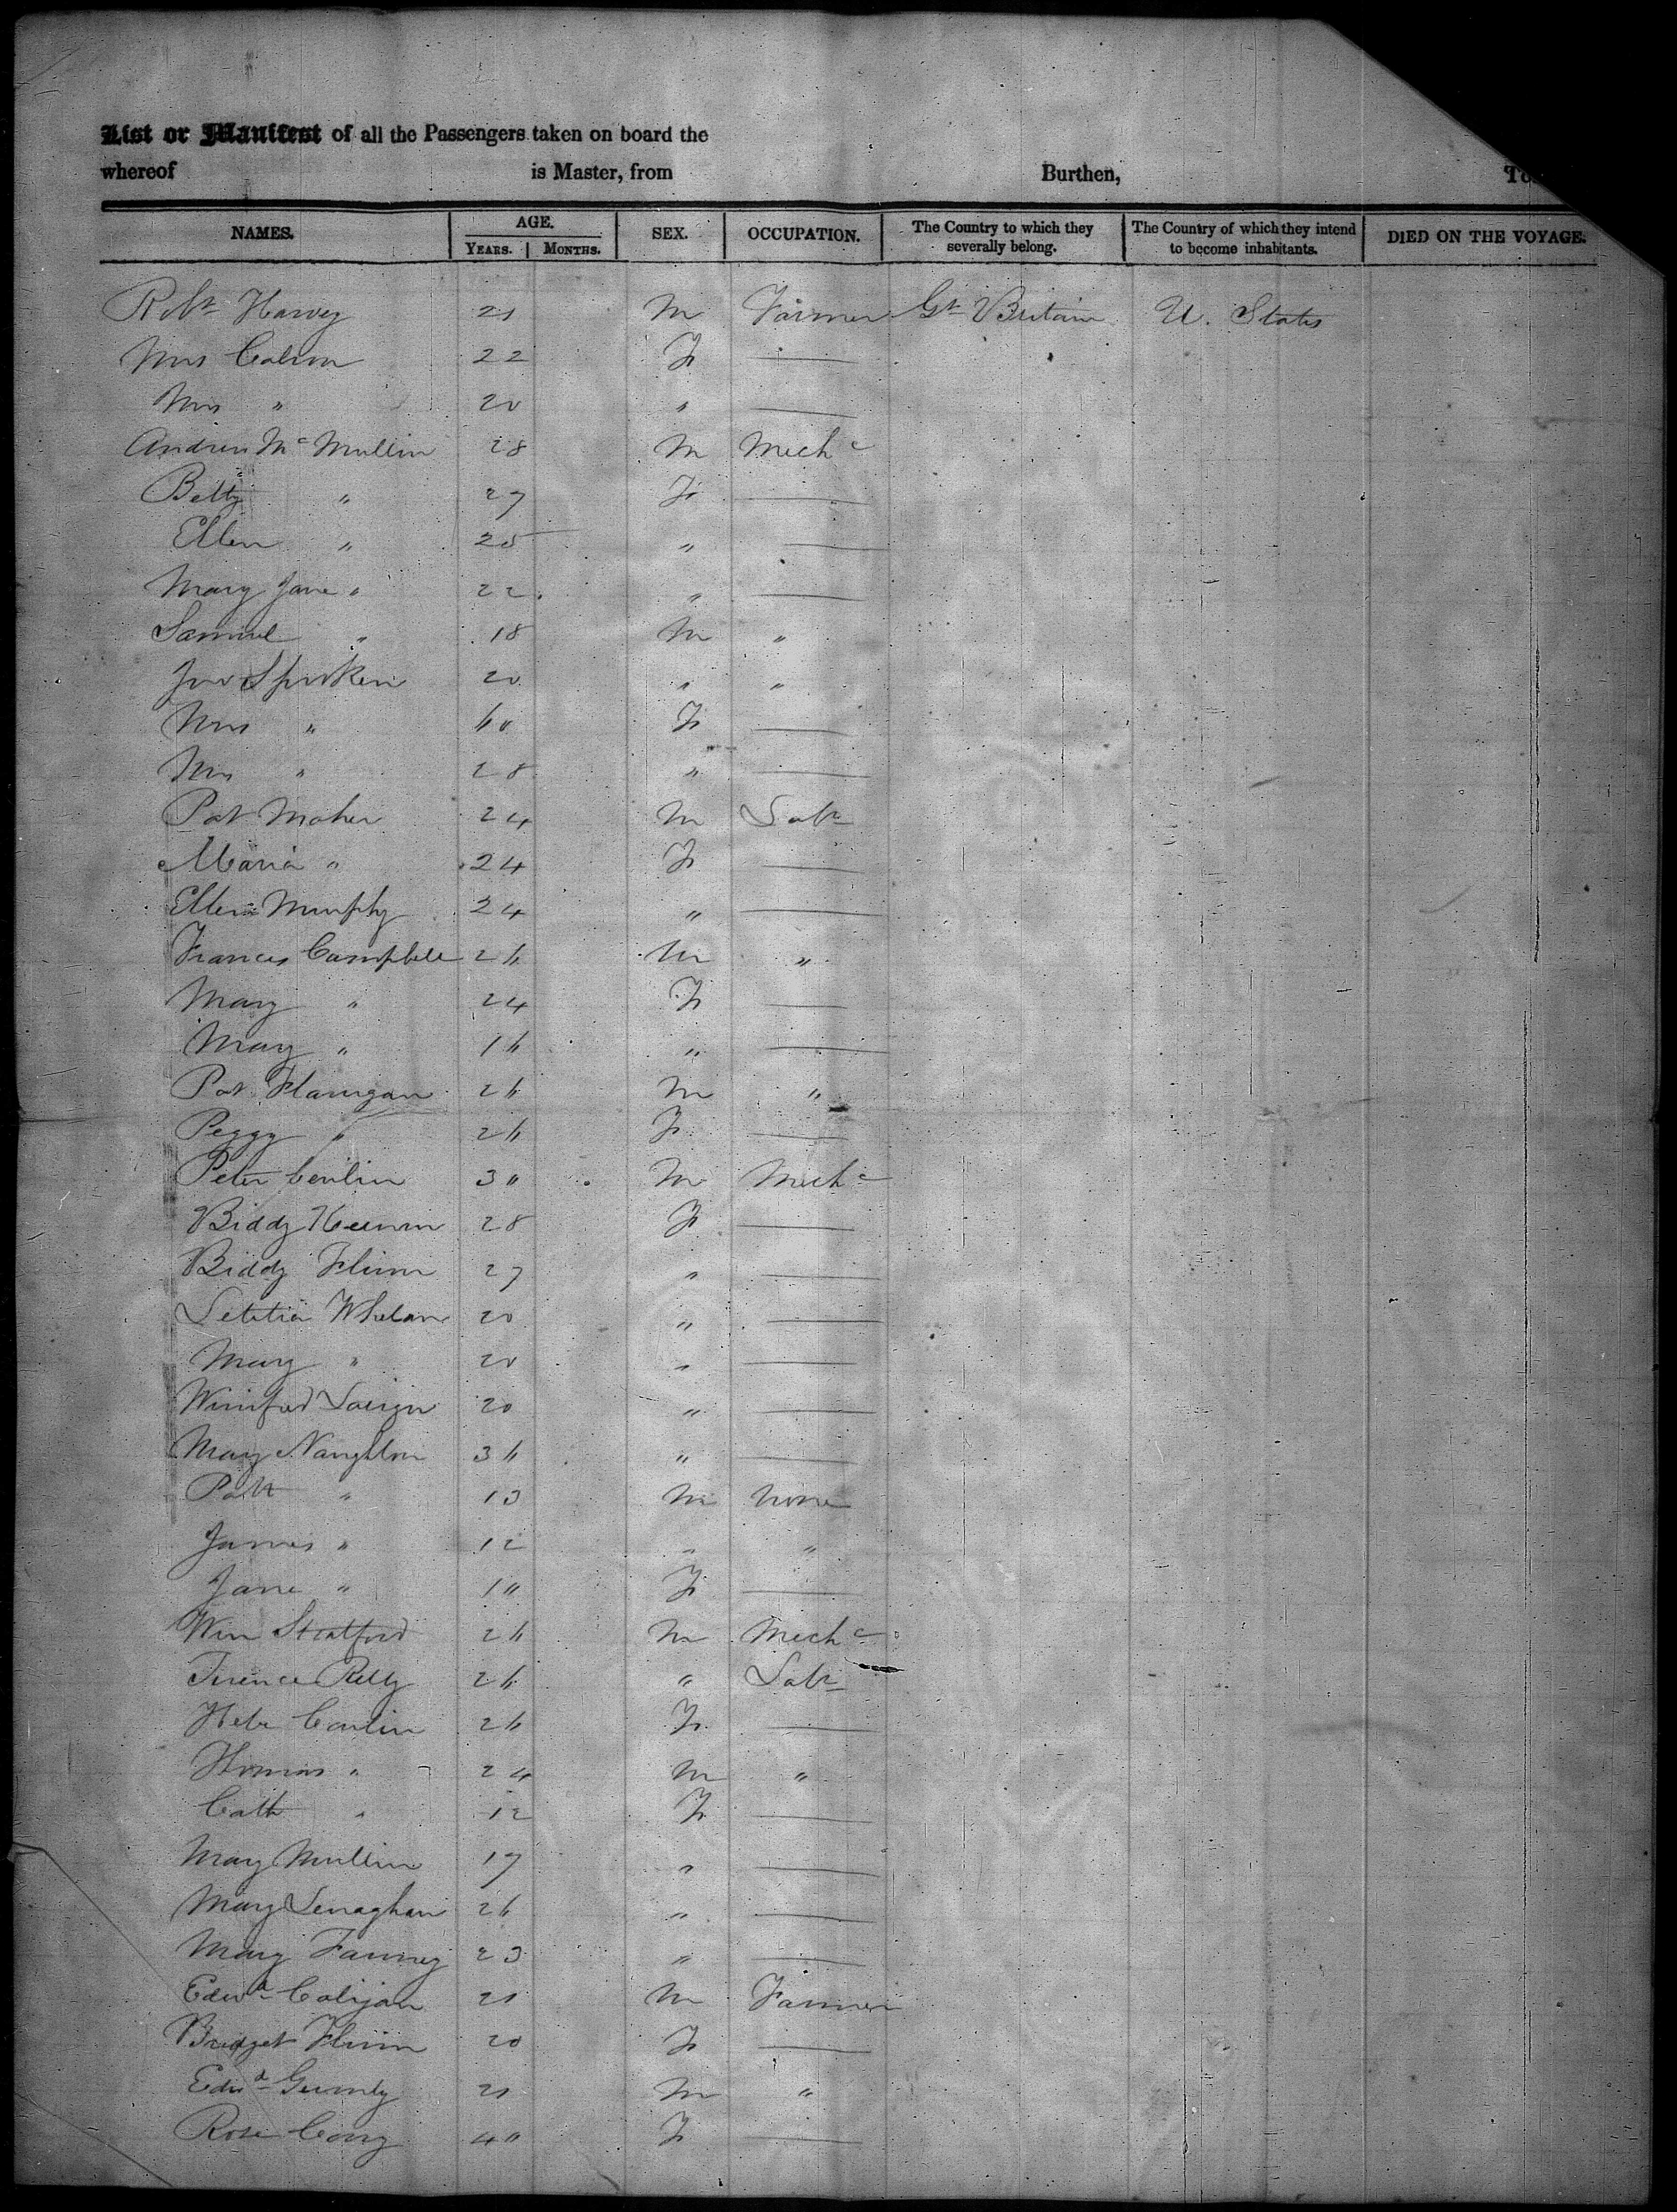 List or Manifest of all the Passengers taken on board the
whereof is Master, from Burthen,
NAMES. AGE. YEARS. MONTHS. SEX. OCCUPATION. The Country to which they severally belong. The Country of which they intend to become inhabitants. DIED ON THE VOYAGE.
Robt Harvey 21 M Farmer Gt Britain U. States
Mrs 22 F —
Mrs " 20 " —
Andrew McMullin 28 M Mechc
Betty " 27 F —
Ellen " 25 " —
Mary Jane " 22 " —
Samuel " 18 M "
Jno 20 " "
Mrs " 60 F —
Mrs " 28 " —
Pat Maher 24 M Labr
Maria " 24 F —
Ellen Murphy 24 " —
Frances Campbell 26 M "
Mary " 24 F —
Mary " 16 " —
Pat Flanigan 26 M "
Peggy " 26 F —
Peter 30 M Mechc
Biddy 28 F —
Biddy Flinn 27 " —
Letitia Whelan 20 " —
Mary " 20 " —
Winifred 20 " —
Mary Naughton 36 " —
Patk " 13 M None
James " 12 " "
Jane " 10 F —
Wm Stratford 26 M Mechc
Terence Reilly 26 " Labr
26 F —
Thomas " 24 M "
Cath " 12 F —
Mary Mullin 17 " —
Mary Lenaghan 26 " —
Mary 23 " —
Edwd 21 M Farmer
Bridget Flinn 20 F —
Edwd 21 M "
Rose 40 F —